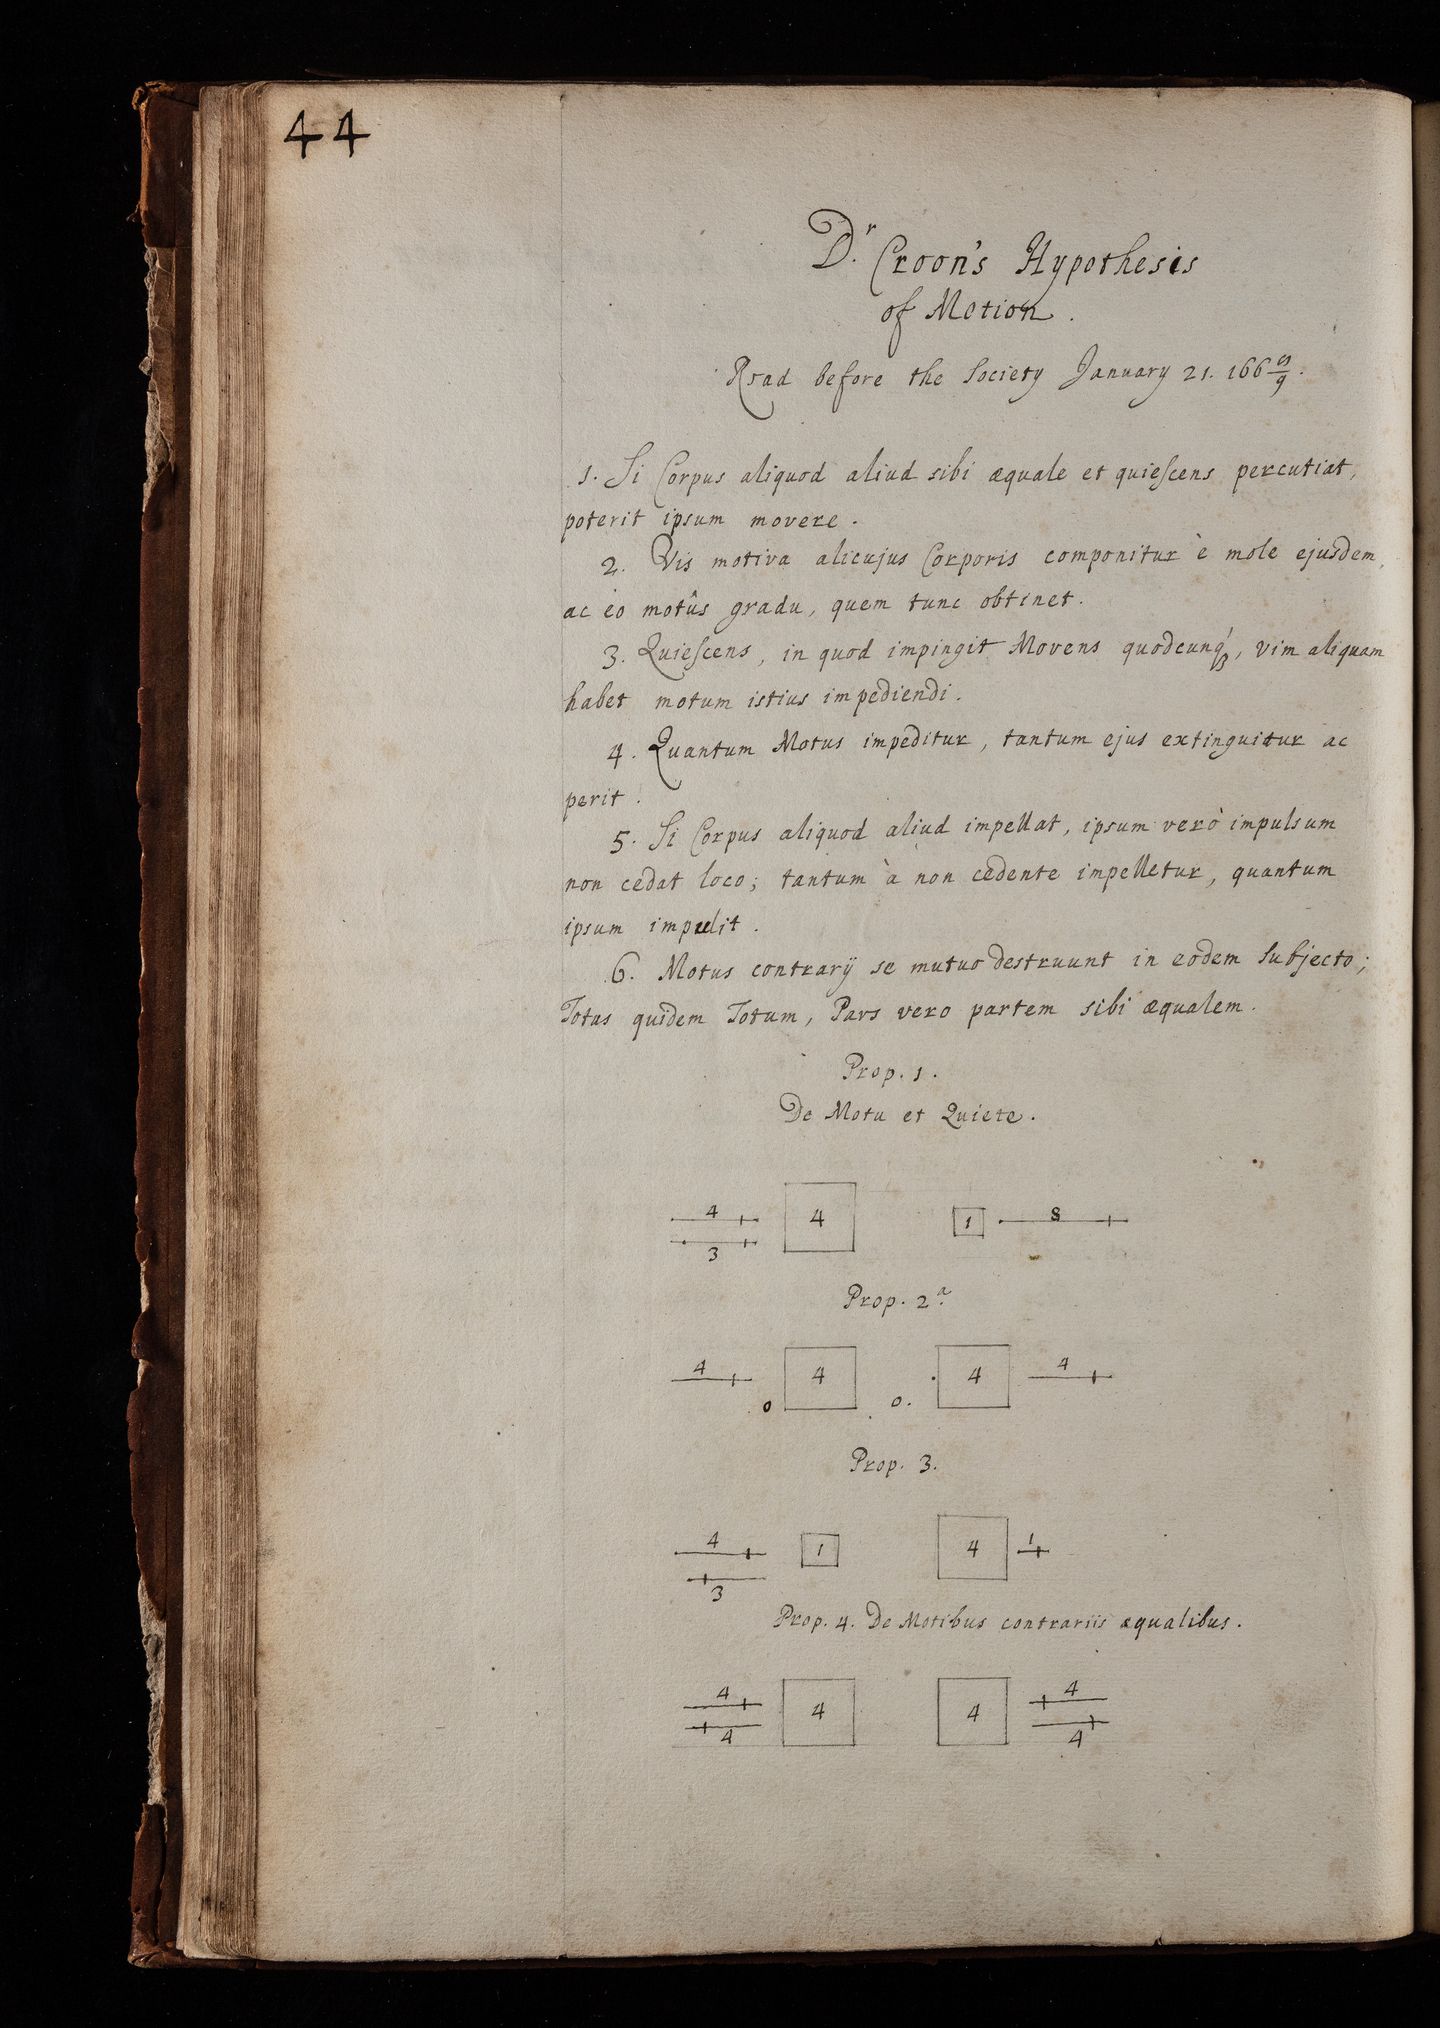 44
Dr. Croon's Hypothesis
of Motion.
Read before the Society January 21. 166 8/9.
1. Si Corpus aliquod aliud sibi æquale et quiescens percutiat,
poterit ipsum movere.
2. Vis motiva alicujus Corporis componitur è mole ejusdem,
ac eo motûs gradu, quem tunc obtinet.
3. Quiescens, in quod impingit Movens quodcunq3, vim aliquam
habet motum istius impediendi.
4. Quantum Motus impeditur, tantum ejus extinguitur ac
perit.
5. Si Corpus aliquod aliud impellat, ipsum verò impulsum
non cedat loco; tantum à non cedente impelletur, quantum
ipsum impulit.
6. Motus contrarij se mutuo destruunt in eodem Subjecto;
Totus quidem Totum, Pars vero partem sibi æqualem.
Prop. 1.
De Motu et Quiete.
4 4 1 8
3
Prop. 2a.
4 4 4 4
0 0.
Prop. 3.
4 1 4 1
3
Prop. 4. De Motibus contrariis æqualibus.
4 4 4 4
4 4